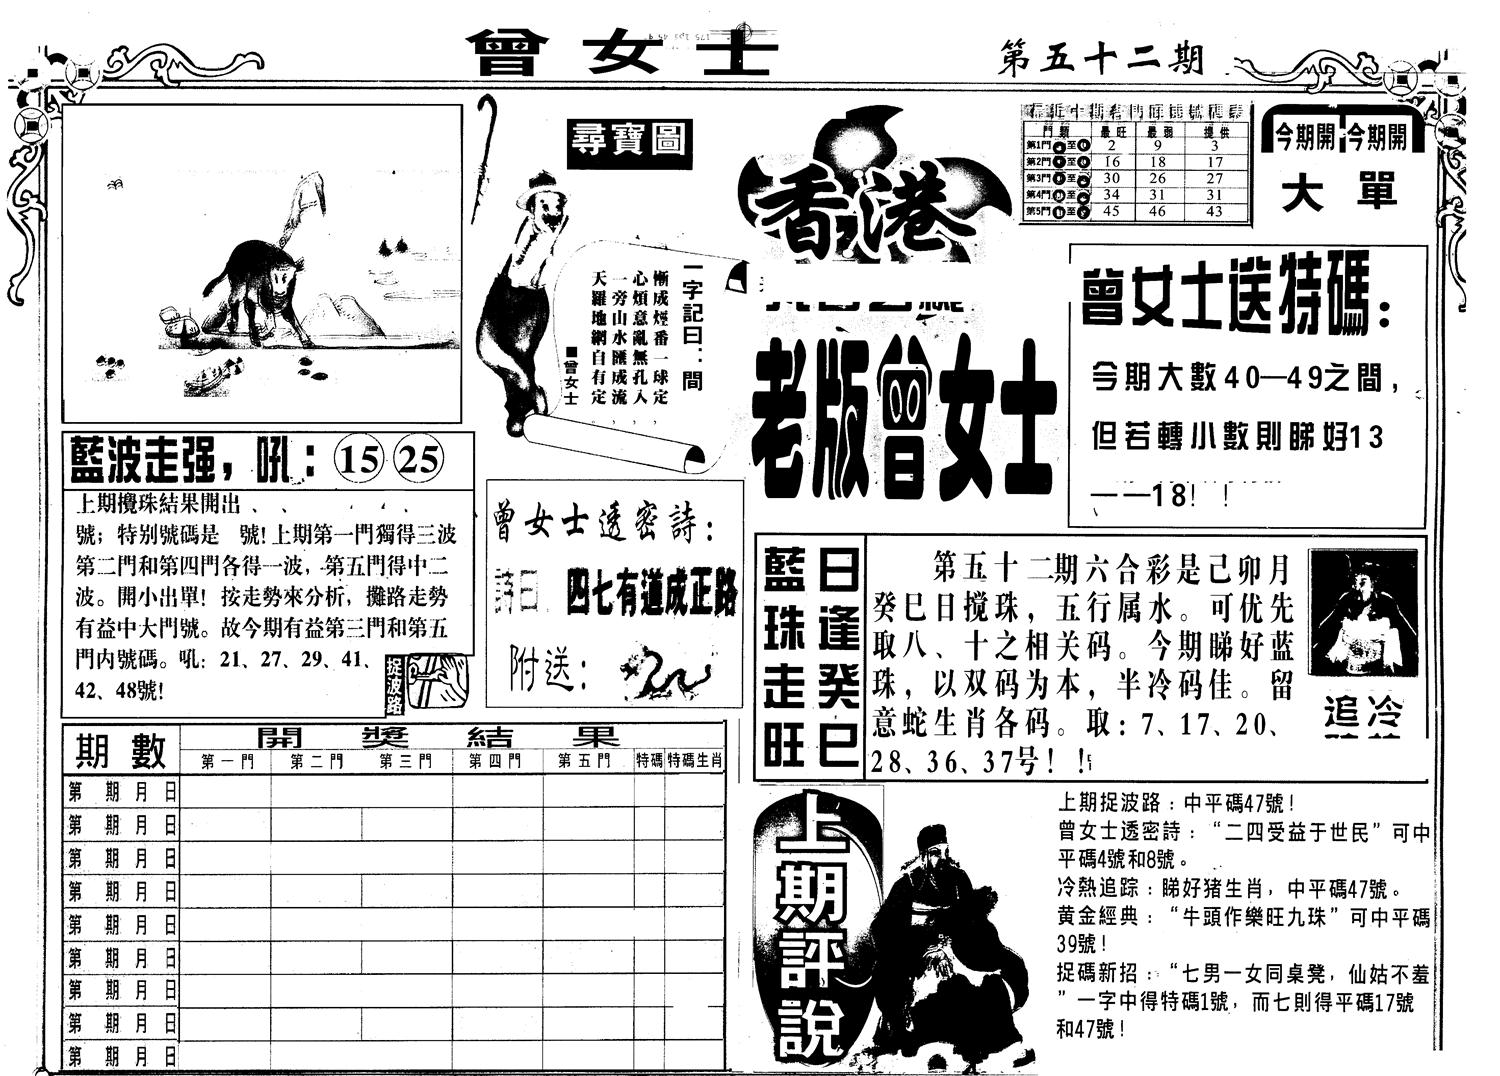 曾女士
第五十二期
尋寶圖
一字記曰：間
慚成煙番一球定，
心煩意亂無孔入，
一旁山水匯成流，
天羅地網自有定。
■曾女士
香港
老版曾女士
門類 最旺 最弱 提供
第1門 至 2 9 3
第2門 至 16 18 17
第3門 至 30 26 27
第4門 至 34 31 31
第5門 至 45 46 43
今期開 今期開
大 單
曾女士送特碼：
今期大數40—49之間，
但若轉小數則睇好13
——18！！
藍波走强，吼：15 25
上期攪珠結果開出 、 、
號；特别號碼是 號！上期第一門獨得三波
第二門和第四門各得一波，第五門得中二
波。開小出單！按走勢來分析，攤路走勢
有益中大門號。故今期有益第三門和第五
門内號碼。吼：21、27、29、41、
42、48號！
捉波路
曾女士透密詩：
詩曰 四七有道成正路
附送：
藍珠走旺
日逢癸巳
第五十二期六合彩是己卯月
癸巳日搅珠，五行属水。可优先
取八、十之相关码。今期睇好蓝
珠，以双码为本，半冷码佳。留
意蛇生肖各码。取：7、17、20、
28、36、37号！！
追冷
期數 開獎結果
第一門 第二門 第三門 第四門 第五門 特碼 特碼生肖
第 期 月 日
第 期 月 日
第 期 月 日
第 期 月 日
第 期 月 日
第 期 月 日
第 期 月 日
第 期 月 日
第 期 月 日
上期評說
上期捉波路：中平碼47號！
曾女士透密詩：“二四受益于世民”可中
平碼4號和8號。
冷熱追踪：睇好猪生肖，中平碼47號。
黄金經典：“牛頭作樂旺九珠”可中平碼
39號！
捉碼新招：“七男一女同桌凳，仙姑不羞
”一字中得特碼1號，而七則得平碼17號
和47號！